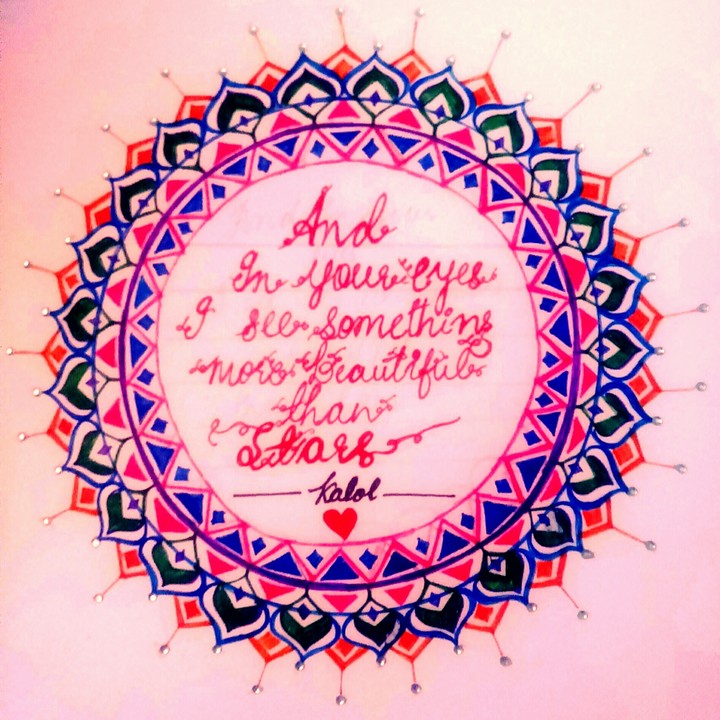 And
In your eyes
I see something
more beautiful
than
Stars
Kalol